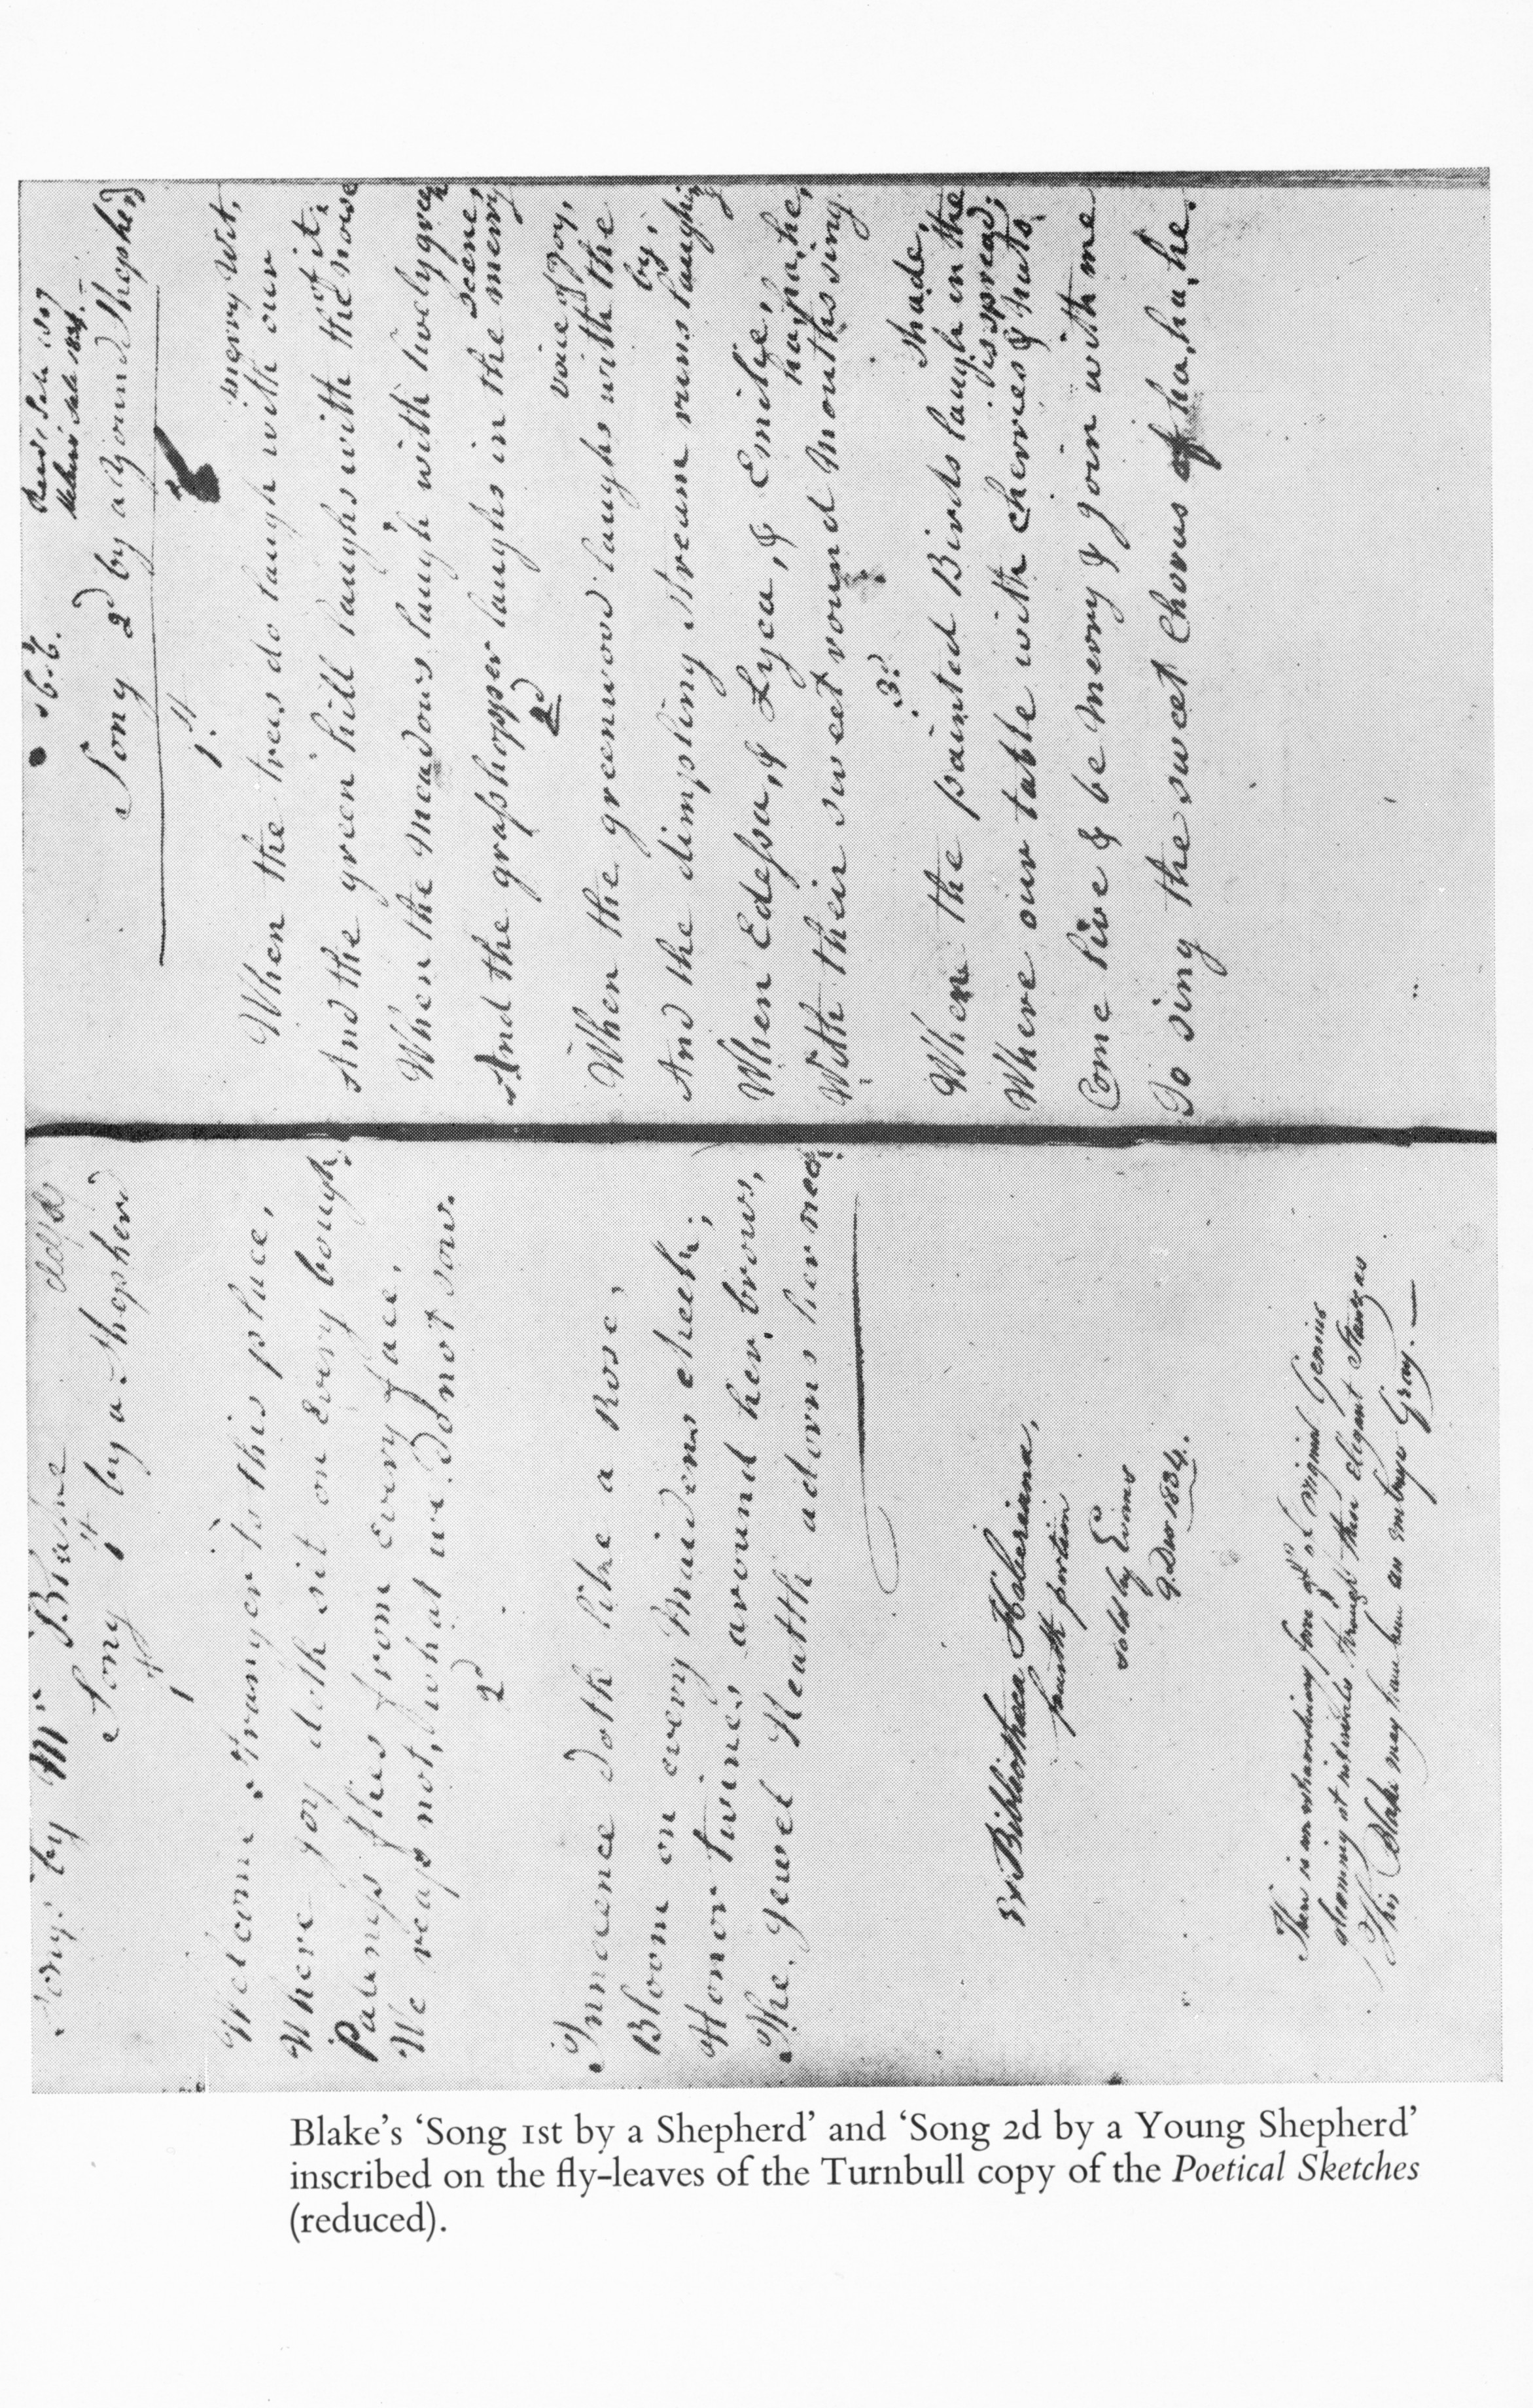 Songs by Mr Blake
Song 1st by a Shepherd
1st
Welcome Stranger to this place,
Where joy doth sit on Every bough.
Paleness flies from Every face,
We reap not, what we do not sow.
2d
Innocence doth like a Rose,
Bloom on every Maidens cheek;
Honor twines around her brows,
The Jewel Health adorns her neck.
Bibliotheca Heberiana,
fourth portion
sold by Evans
9. Dec 1834.
There is an extraordinary fore of original Genius
gleaming at intervals through these elegant Stanzas
This Blake may have been an embryo Gray. —
Reed's Sale 1807
Heber's Sale 1834. —
S6.6.
Song 2d by a Young Shepherd
1st
When the trees do laugh with our
merry Wit,
And the green hill laughs with the noise
of it,
When the meadows laugh with lively green
And the graſshopper laughs in the merry
scene,
2d
When the greenwood laughs with the
voice of joy,
And the dimpling Stream runs laughing
by,
When Edeſsa, & Lyca, & Emilie,
With their sweet round Mouths sing
ha, ha, he,
3d
Where the painted Birds laugh in the
shade,
Where our table with cherries & nuts
is spread;
Come live & be merry & join with me
To sing the sweet Chorus of ha, ha, he.
Blake's ‘Song 1st by a Shepherd’ and ‘Song 2d by a Young Shepherd’
inscribed on the fly-leaves of the Turnbull copy of the Poetical Sketches
(reduced).